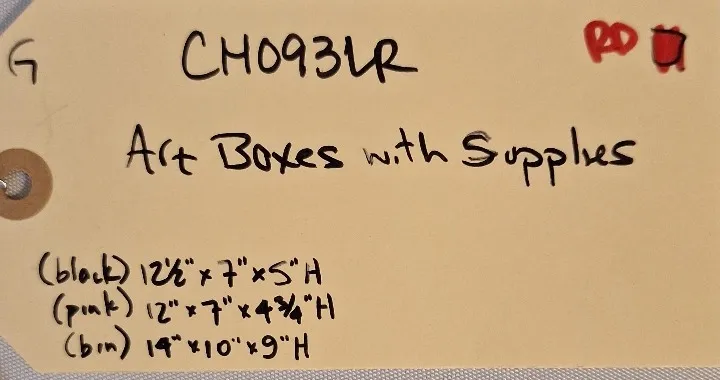 G CH093LR RD
Art Boxes with Supplies
(black) 12½" x 7" x 5" H
(pink) 12" x 7" x 4¾" H
(bin) 14" x 10" x 9" H